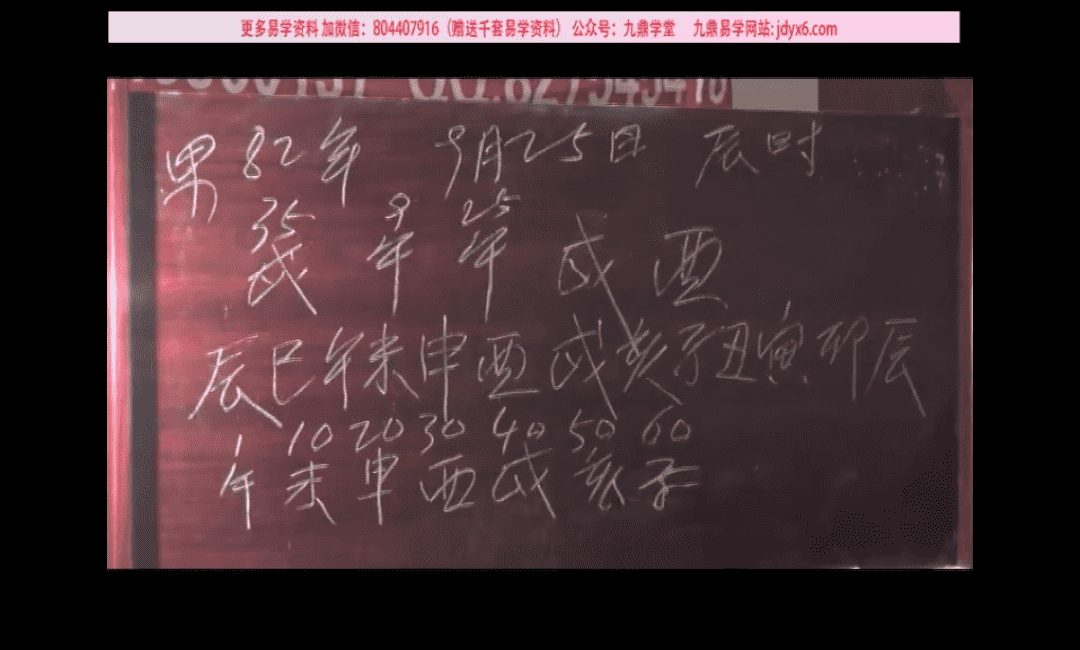 更多易学资料 加微信：804407916（赠送千套易学资料） 公众号：九鼎学堂 九鼎易学网站:jdyx6.com
QQ:827343416
男 82年 9月25日 辰时
35 9 25
戌 午 午 戌 酉
辰巳午未申酉戌亥子丑寅卯辰
1 10 20 30 40 50 60
午 未 申 酉 戌 亥 子